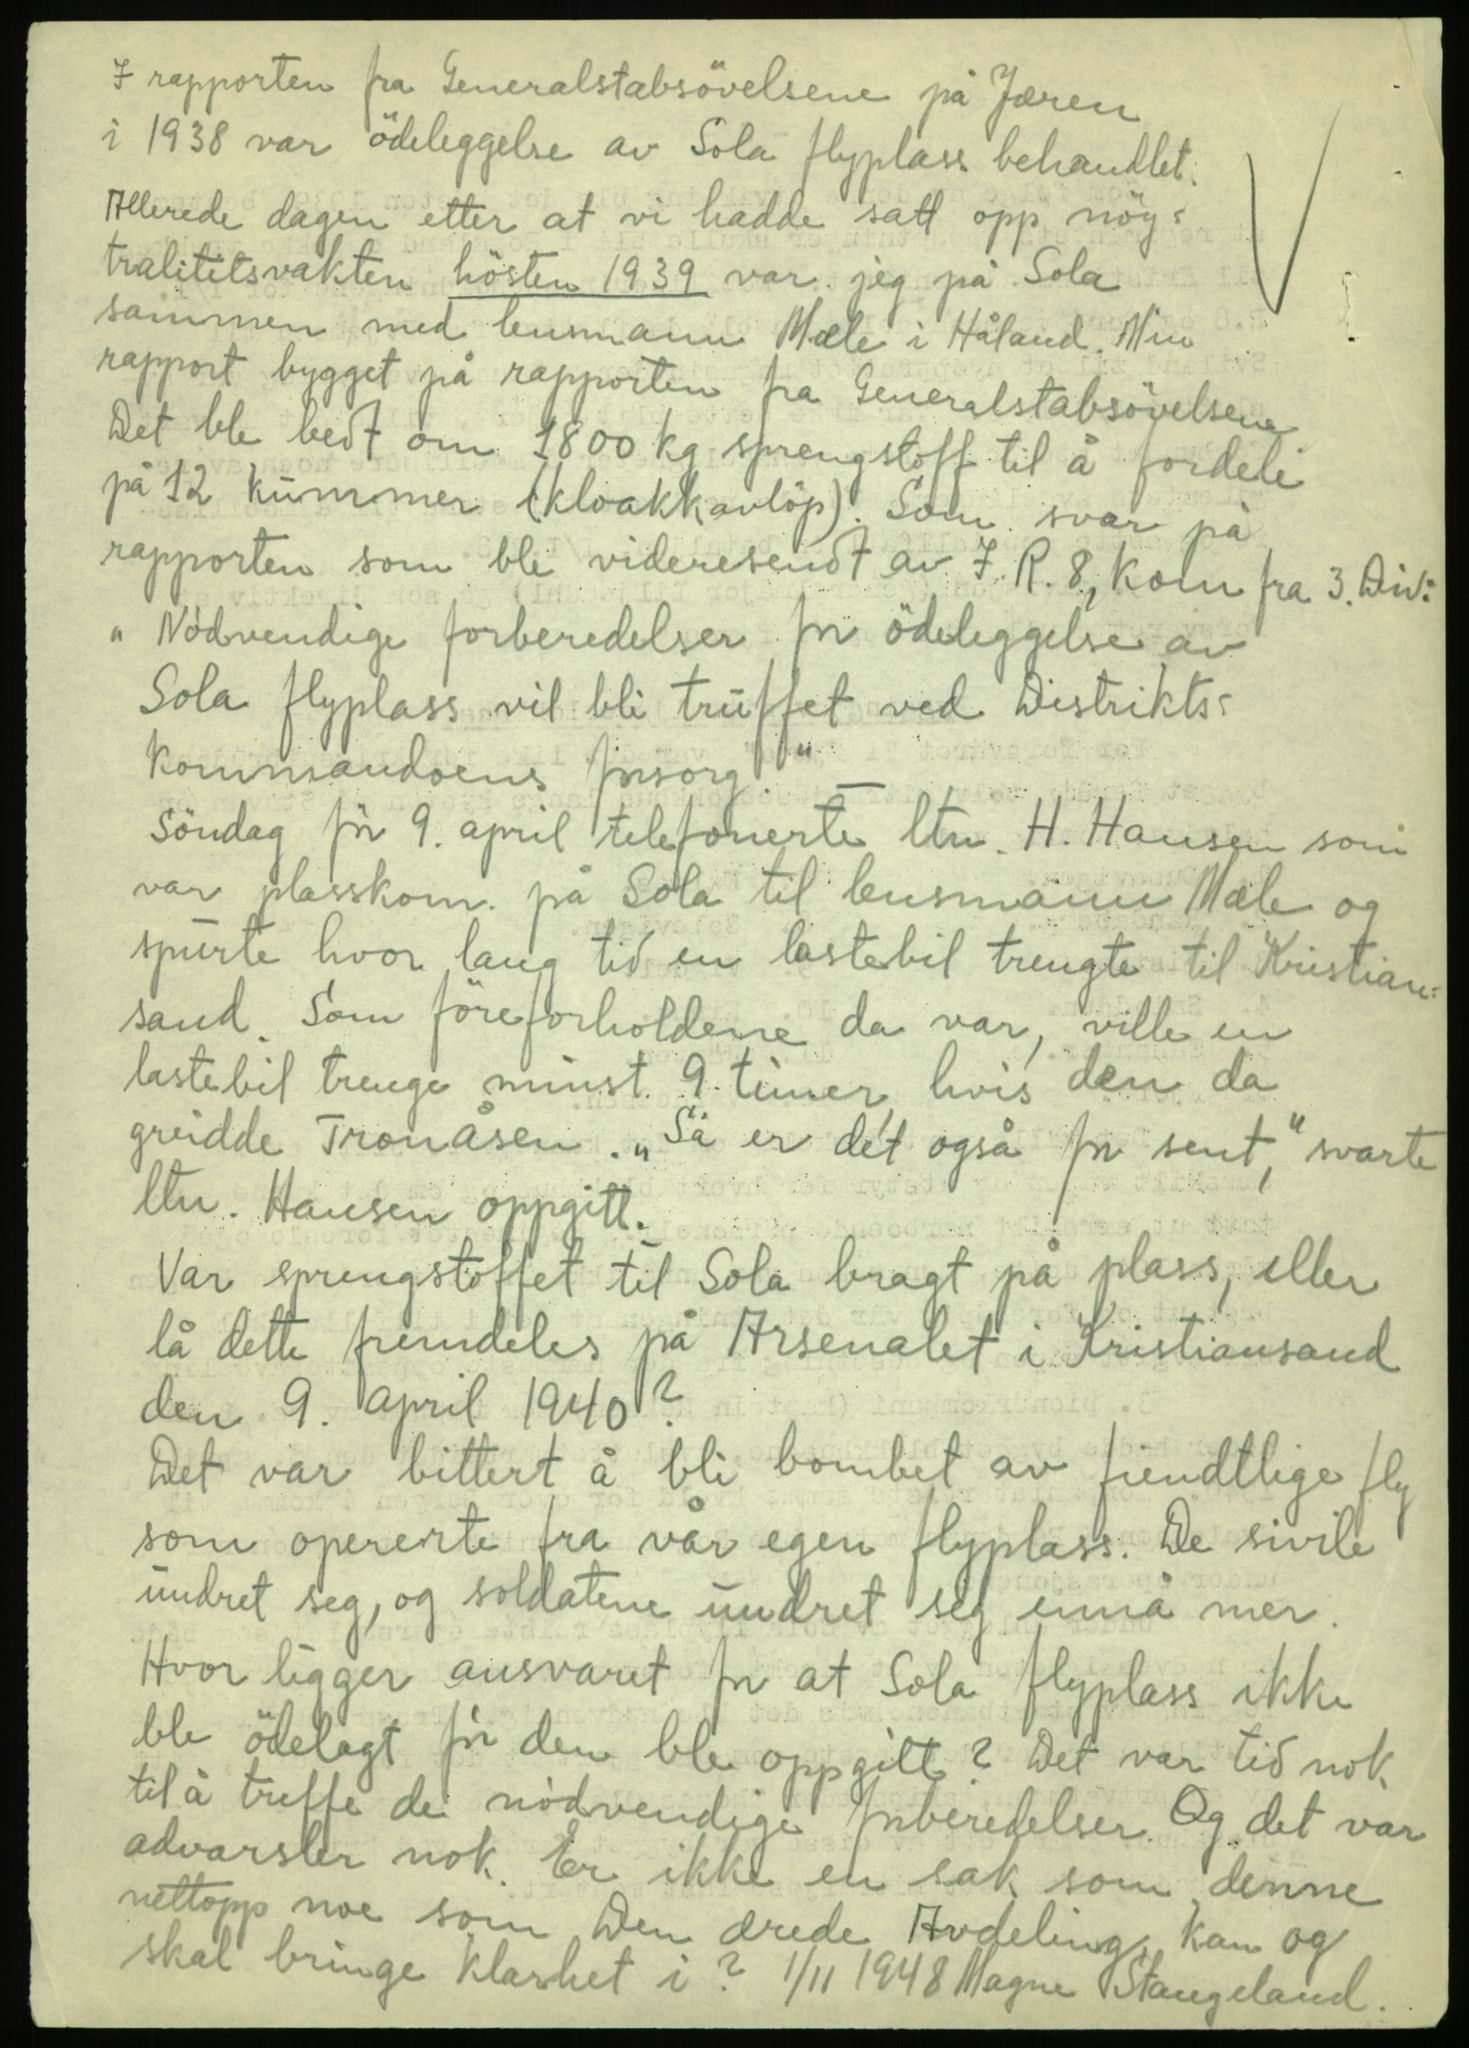 I rapporten fra Generalstabsövelsene på Jæren
i 1938 var ödeleggelse av Sola flyplass behandlet.
Allerede dagen etter at vi hadde satt opp nöy-
tralitetsvakten hösten 1939 var jeg på Sola
sammen med lensmann Mæle i Håland. Min
rapport bygget på rapporten fra Generalstabsövelsene
Det ble bedt om 1800 kg sprengstoff til å fordele
på 12 kummer (kloakkavlöp). Som svar på
rapporten som ble videresendt av I.R. 8, kom fra 3. Div:
„ Nödvendige forberedelser for ödeleggelse av
Sola flyplass vil bli truffet ved Distrikts-
kommandoens forsorg." —
Söndag för 9. april telefonerte ltn. H. Hansen som
var plasskom. på Sola til lensmann Mæle og
spurte hvor lang tid en lastebil trengte til Kristian-
sand. Som föreforholdene da var, ville en
lastebil trenge minst 9 timer, hvis den da
greidde Tronåsen. „Så er det også for sent," svarte
ltn. Hansen oppgitt.
Var sprengstoffet til Sola bragt på plass, eller
lå dette fremdeles på Arsenalet i Kristiansand
den 9. april 1940?
Det var bittert å bli bombet av fiendtlige fly
som opererte fra vår egen flyplass. De sivile
undret seg, og soldatene undret seg ennå mer.
Hvor ligger ansvaret for at Sola flyplass ikke
ble ödelagt för den ble oppgitt? Det var tid nok
til å treffe de nödvendige forberedelser. Og det var
advarsler nok. Er ikke en sak som denne
nettopp noe som Den ærede Avdeling kan og
skal bringe klarhet i? 1/11 1948 Magne Stangeland.